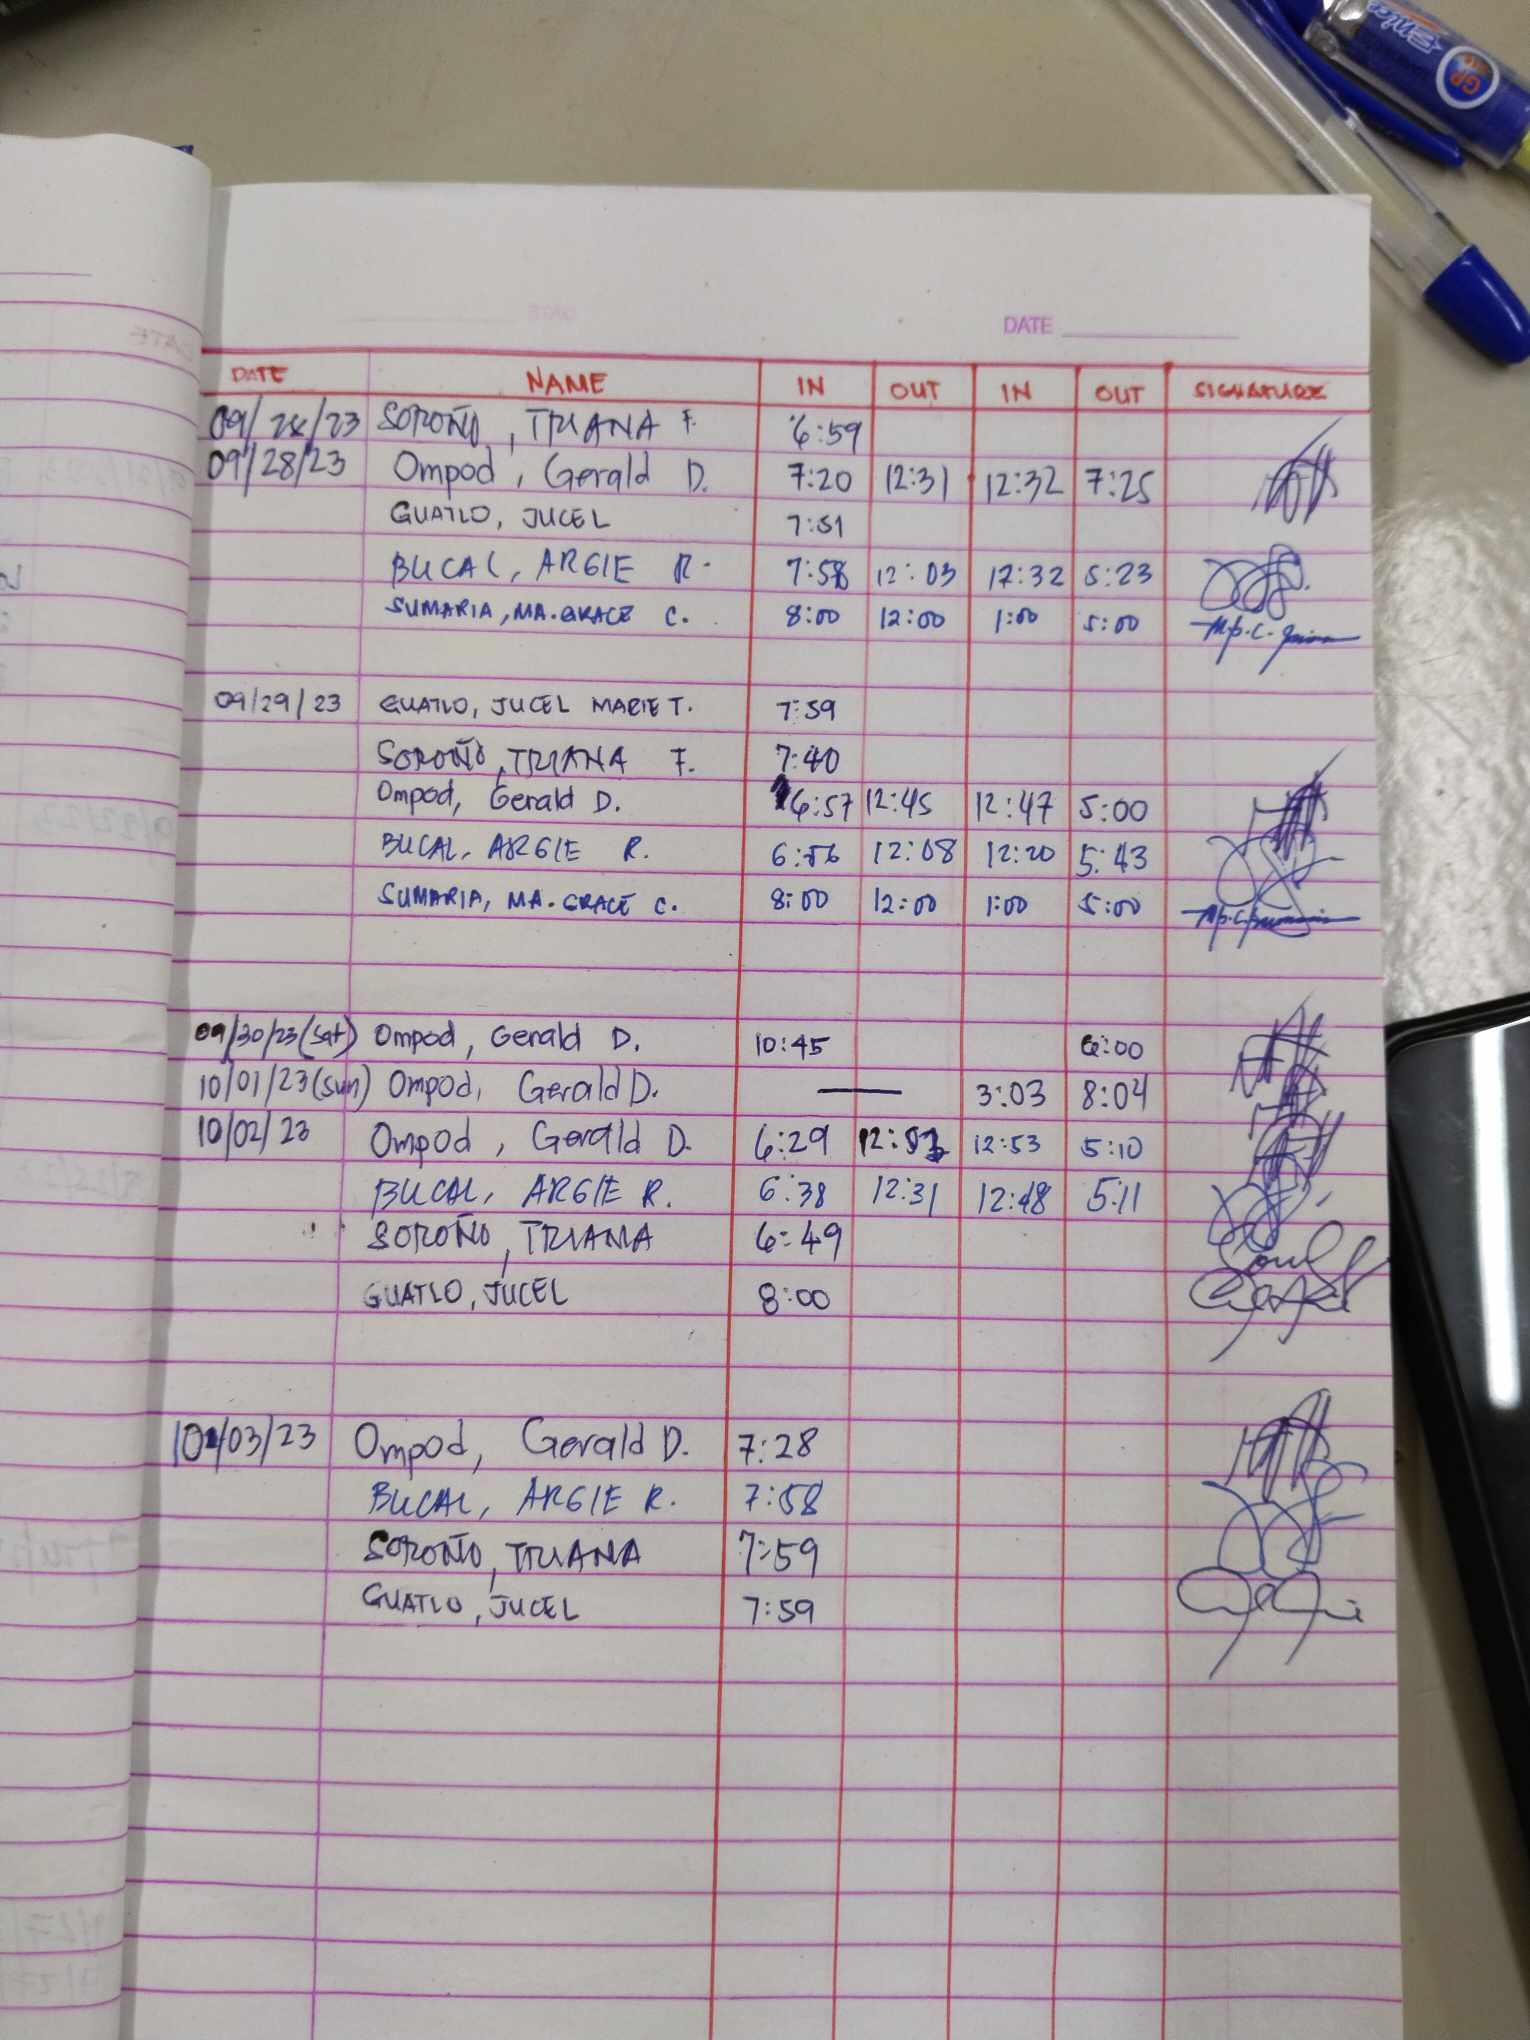 DATE
DATE NAME IN OUT IN OUT SIGNATURE
09/28/23 SOROÑO, TRIANA F. 6:59
09/28/23 Ompod, Gerald D. 7:20 12:31 12:32 7:25
GUATLO, JUCEL 7:51
BUCAL, ARGIE R. 7:58 12:03 12:32 5:23
SUMARIA, MA. GRACE C. 8:00 12:00 1:00 5:00
09/29/23 GUATLO, JUCEL MARIE T. 7:59
SOROÑO, TRIANA F. 7:40
Ompod, Gerald D. 6:57 12:45 12:47 5:00
BUCAL, ARGIE R. 6:56 12:08 12:20 5:43
SUMARIA, MA. GRACE C. 8:00 12:00 1:00 5:00
09/30/23 (Sat) Ompod, Gerald D. 10:45 6:00
10/01/23 (Sun) Ompod, Gerald D. — 3:03 8:04
10/02/23 Ompod, Gerald D. 6:29 12:53 5:10
BUCAL, ARGIE R. 6:38 12:31 12:48 5:11
SOROÑO, TRIANA 6:49
GUATLO, JUCEL 8:00
10/03/23 Ompod, Gerald D. 7:28
BUCAL, ARGIE R. 7:58
SOROÑO, TRIANA 7:59
GUATLO, JUCEL 7:59